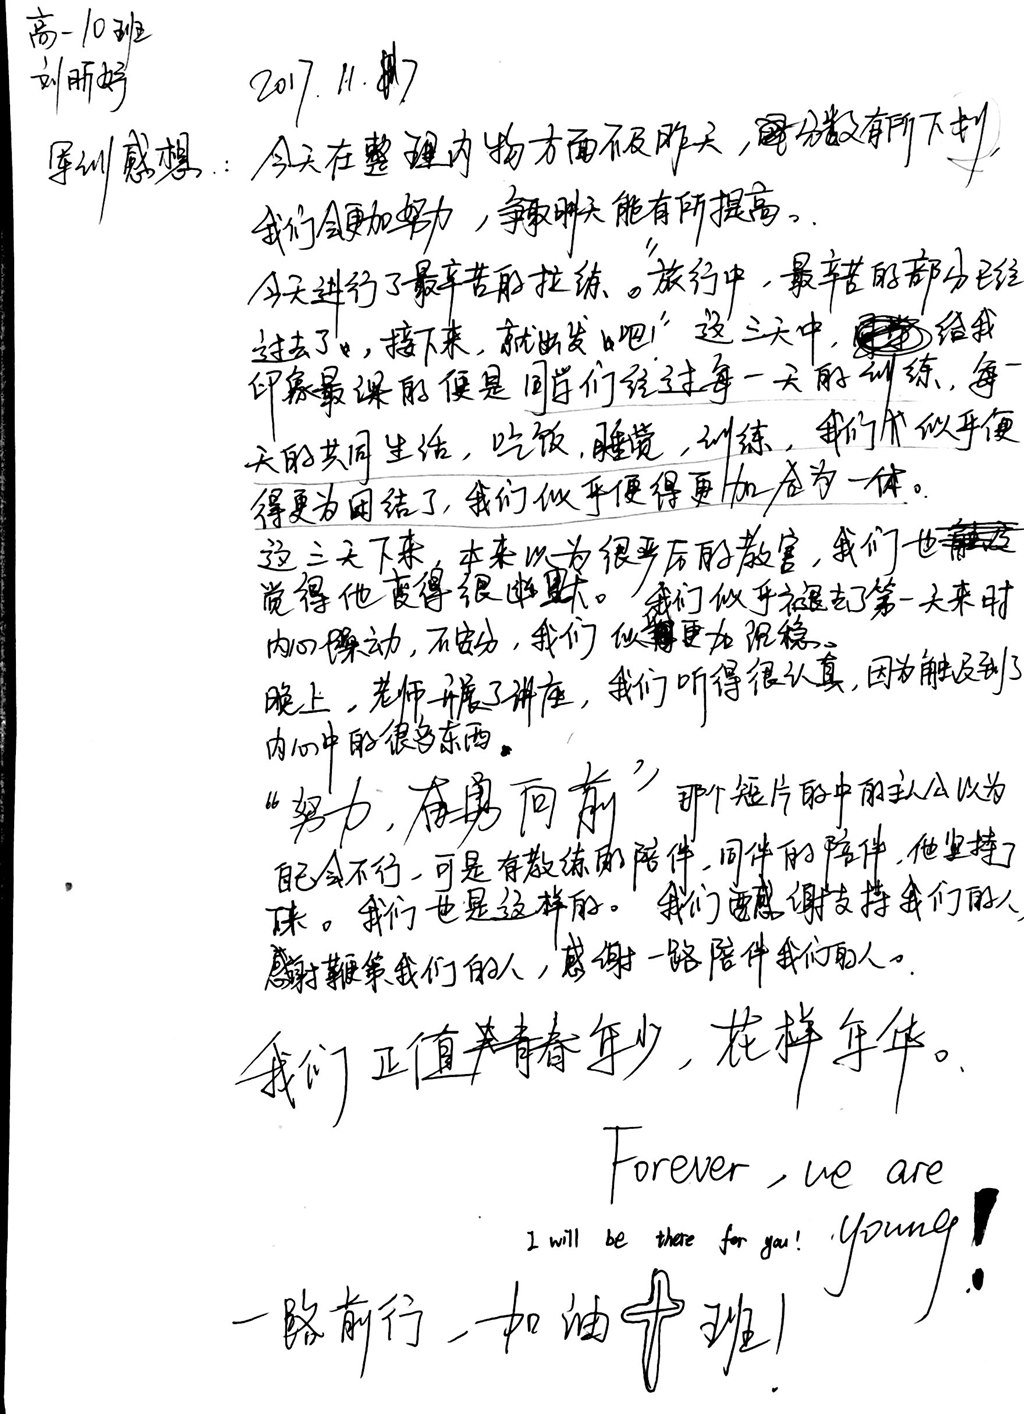 高一10班
刘昕妤
2017.11.17
军训感想：今天在整理内物方面不及昨天，分数有所下划，
我们会更加努力，争取明天能有所提高。
今天进行了最辛苦的拉练。“旅行中，最辛苦的部分已经
过去了，接下来，就出发吧！”这三天中，给我
印象最深的便是同学们经过每一天的训练，每一
天的共同生活，吃饭，睡觉，训练，我们似乎便
得更为团结了，我们似乎便得更加合为一体。
这三天下来，本来以为很严厉的教官，我们也
觉得他变得很幽默。我们似乎褪去了第一天来时
内心的躁动，不安分，我们似更加沉稳。
晚上，老师开展了讲座，我们听得很认真，因为触及到了
内心中的很多东西。
“努力，奋勇向前”那个短片的中的主人公以为
自己会不行，可是有教练的陪伴，同伴的陪伴，他坚持了
下来。我们也是这样的。我们要感谢支持我们的人，
感谢鞭策我们的人，感谢一路陪伴我们的人。
我们正值青春年少，花样年华。
Forever, we are
I will be there for you! young!
一路前行，加油十班！